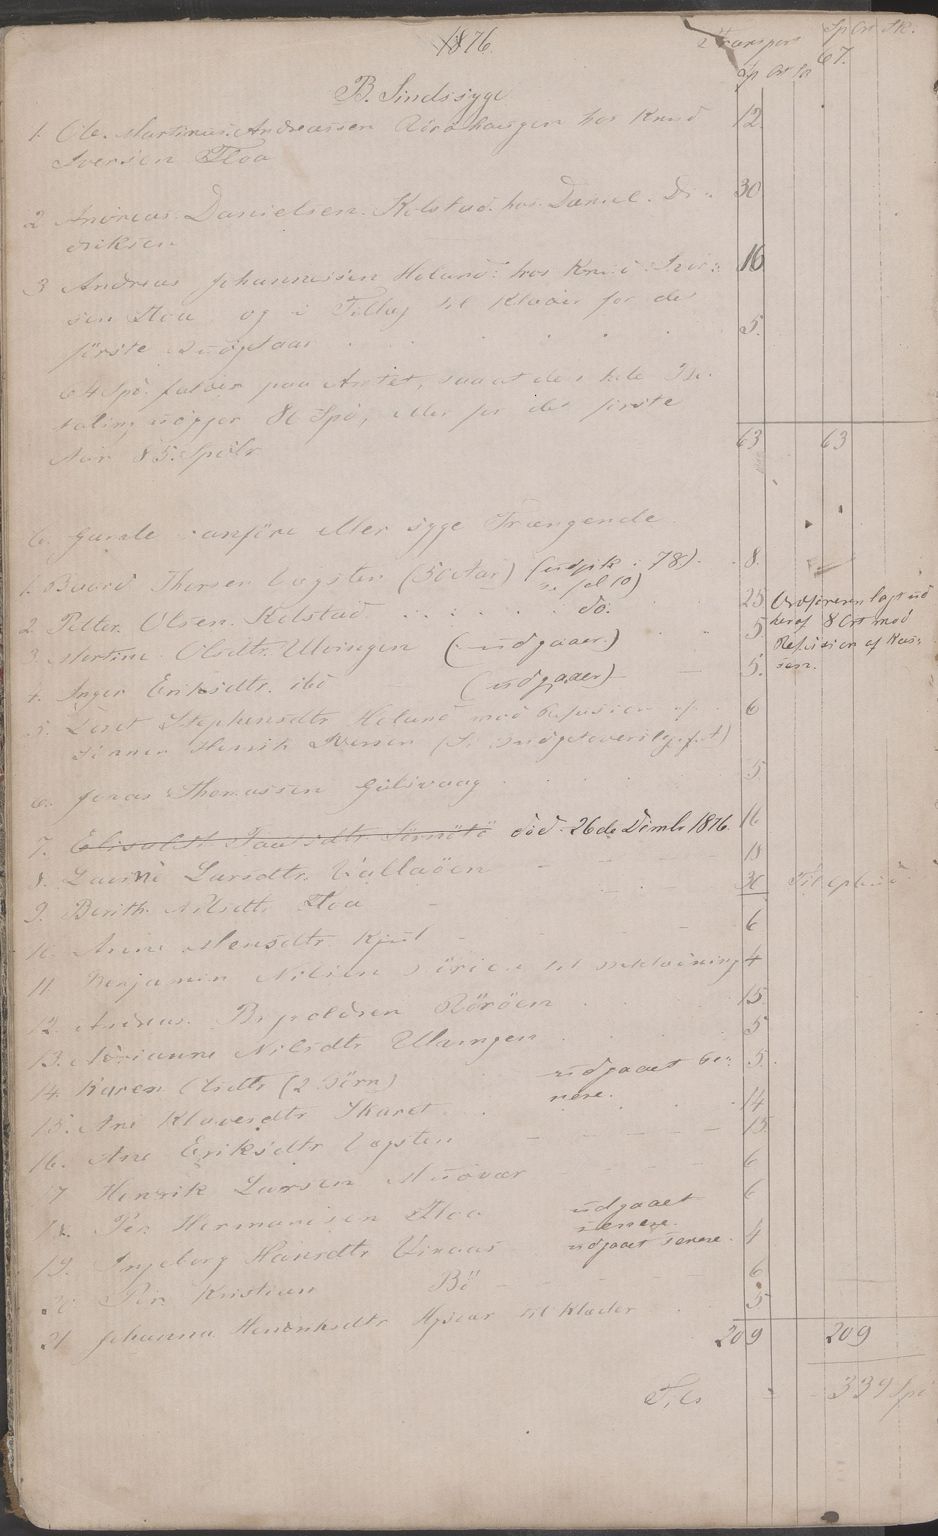 1876.
Transport Sp Ort Sk.
Sp Ort Sk 67.
B. Sindssyge
1. Ole Martinus Andreassen Rörö haugen hos Knud 12.
Iversen Floa
2 Andreas Danielsen Kolstad hos Daniel Di- 30
driksen
3 Andreas Johannessen Holand hos Knud Iver- 16
sen Floa og i Tillæg til Klæder for det
förste Budgetaar 5.
64 Spd. falder paa Amtet, saa at den hele Be-
taling udgjör 80 Spd, eller for det förste
Aar 85 Spdlr
63 63
C. Gamle vanföre eller syge Trængende
1. Baard Thorsen Vogsten (50 Aar) (udgik i 78) 8.
2. Petter Olsen Kolstad do. 25
Ordføreren lagt ud
heraf 8 Ort mod
Refusion af Kas-
sen.
3. Martine Olsdtr. Ulvingen (udgaaer) 5
4. Inger Eriksdtr. ibd (udgaaer) 5.
5. Beret Stephensdtr Holand mod Refusion af 6
Sönnen Henrik Iversen
6. Jonas Thomassen Gulsvaag 5
7. Elisabeth död 26de Decmbr 1876. 16
8. Larsdtr. Vallaöen 18
9. Berith Nilsdtr. Floa 30
10. Anne Monsdtr. 6
11. Benjamin Nilsen Börn til Beklædning 4
12. Andreas Röröen 15
13. Adrianne Nilsdtr Ulvingen 5
14. Karen Olsdtr (2 Börn) udgaaet se- 5.
nere.
15. Ane Klausdtr Skaret 14
16. Ane Eriksdtr Vogsten 15
17 Henrik Larsen Mudvær 6
18. Per Hermansen Floa udgaaet 6
senere.
19. Ingeborg Hansdtr. Vinaas udgaaet senere. 4
20 Per Kristian Bö 6
21 Johanna Hendriksdtr til Klæder 5
209 209
339 Spd